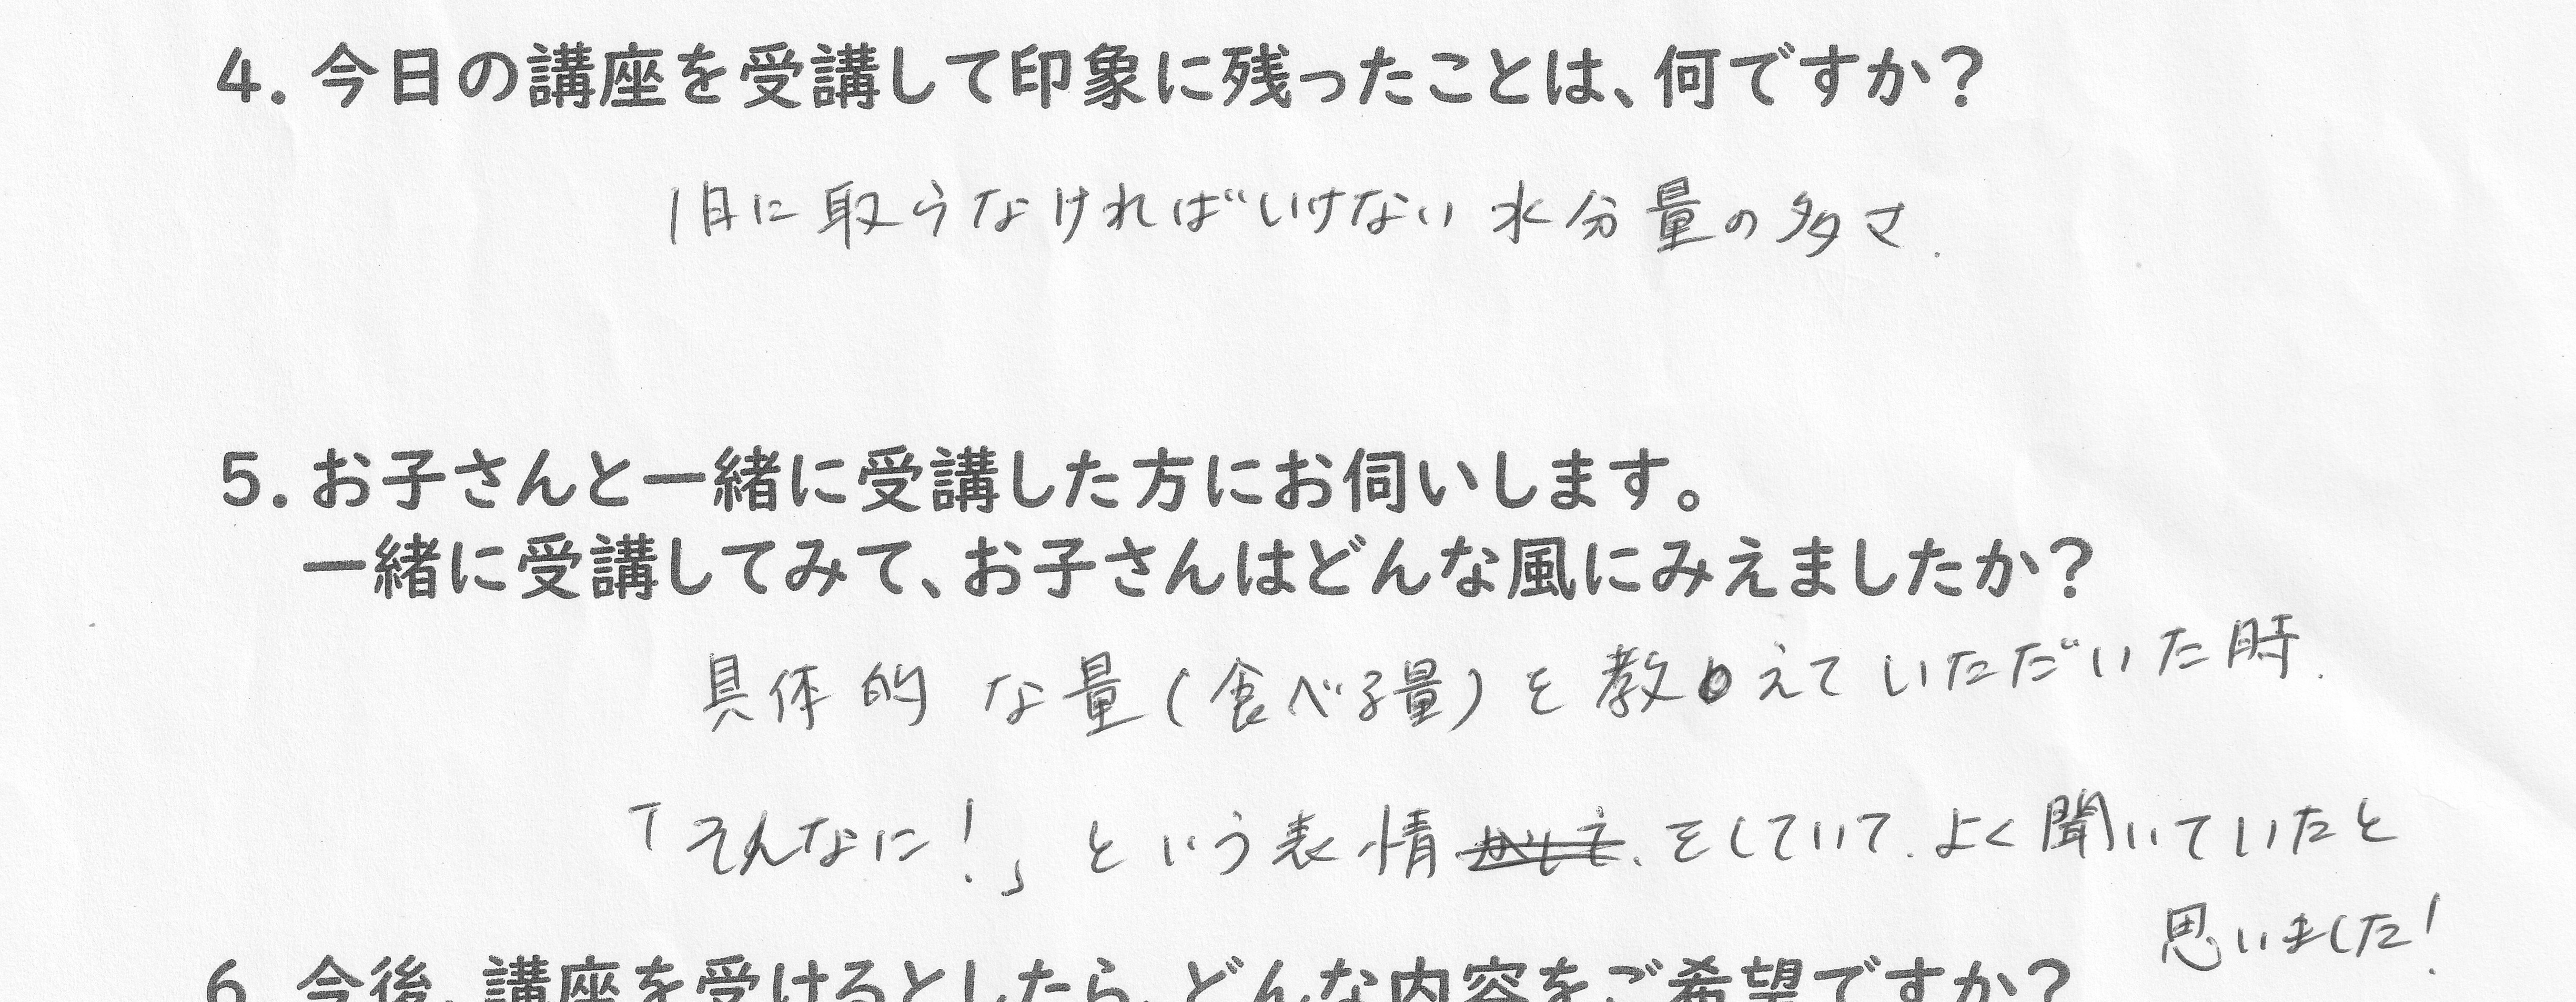 4. 今日の講座を受講して印象に残ったことは、何ですか?
1日に取らなければいけない水分量の多さ.
5. お子さんと一緒に受講した方にお伺いします。
一緒に受講してみて、お子さんはどんな風にみえましたか?
具体的な量(食べる量)を教えていただいた時.
「そんなに!」という表情をしていて.よく聞いていたと
思いました!
6. 今後、講座を受けるとしたら、どんな内容をご希望ですか?